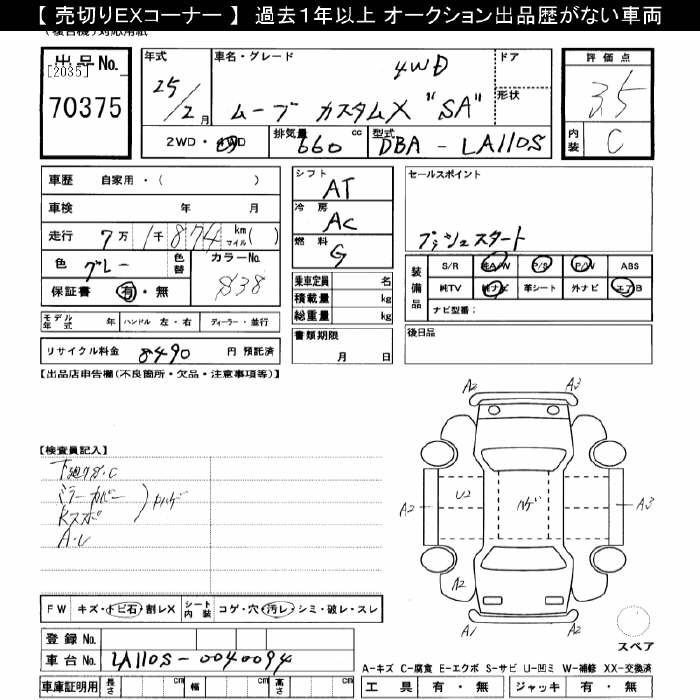 【 売切りEXコーナー 】 過去1年以上 オークション出品歴がない車両
出品No.
[2035]
70375
年式
25/2月
車名・グレード
4WD
ムーブ カスタムX "SA"
ドア
形状
2WD・4WD
排気量 660 cc
型式 DBA-LA110S
評価点
3.5
内装 C
車歴 自家用・( )
車検 年 月
走行 7万1千874 km マイル( )
色 グレー 色替
カラーNo. S38
保証書 有・無
モデル年式 年 ハンドル 左・右 ディーラー・並行
リサイクル料金 8490 円 預託済
シフト AT
冷房 AC
燃料 G
乗車定員 名
積載量 kg
総重量 kg
書類期限
月 日
セールスポイント
プッシュスタート
装備品
S/R 純A/W P/S P/W ABS
純TV 純ナビ 革シート 外ナビ エアB
ナビ型番:
後日品
【出品店申告欄(不良箇所・欠品・注意事項等)】
【検査員記入】
下廻サビ・C
ミラーカバー
Kスポ
A・U
A2 A3
A2 U2 A3
A2
A1 A2
スペア
FW キズ・トビ石・割レX
シート内装 コゲ・穴・汚レ・シミ・破レ・スレ
登録No.
車台No. LA110S-0040094
車庫証明用 長さ cm 幅 cm 高さ cm
A-キズ C-腐食 E-エクボ S-サビ U-凹ミ W-補修 XX-交換済
工具 有・無 ジャッキ 有・無